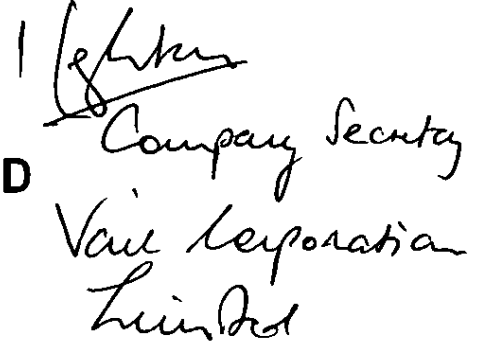 Company Secretary
D
Vail Corporation
Limited